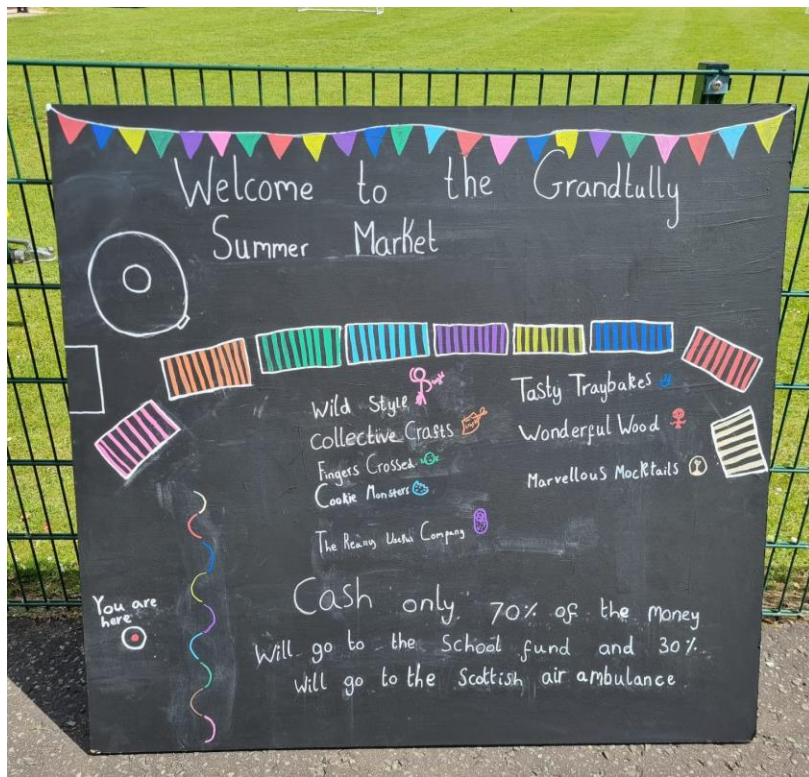 Welcome to the Grandtully
Summer Market
Wild Style
Collective Crafts
Fingers Crossed
Cookie Monsters
The Really Useful Company
Tasty Traybakes
Wonderful Wood
Marvellous Mocktails
You are
here
Cash only 70% of the money
Will go to the School fund and 30%
Will go to the Scottish air ambulance